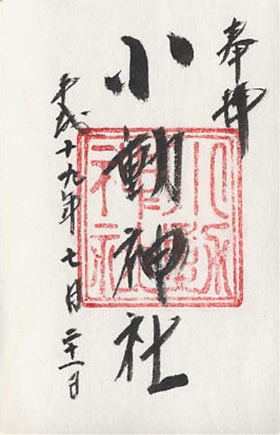 奉拝
小動神社
平成十九年七月二十一日
小動
神社